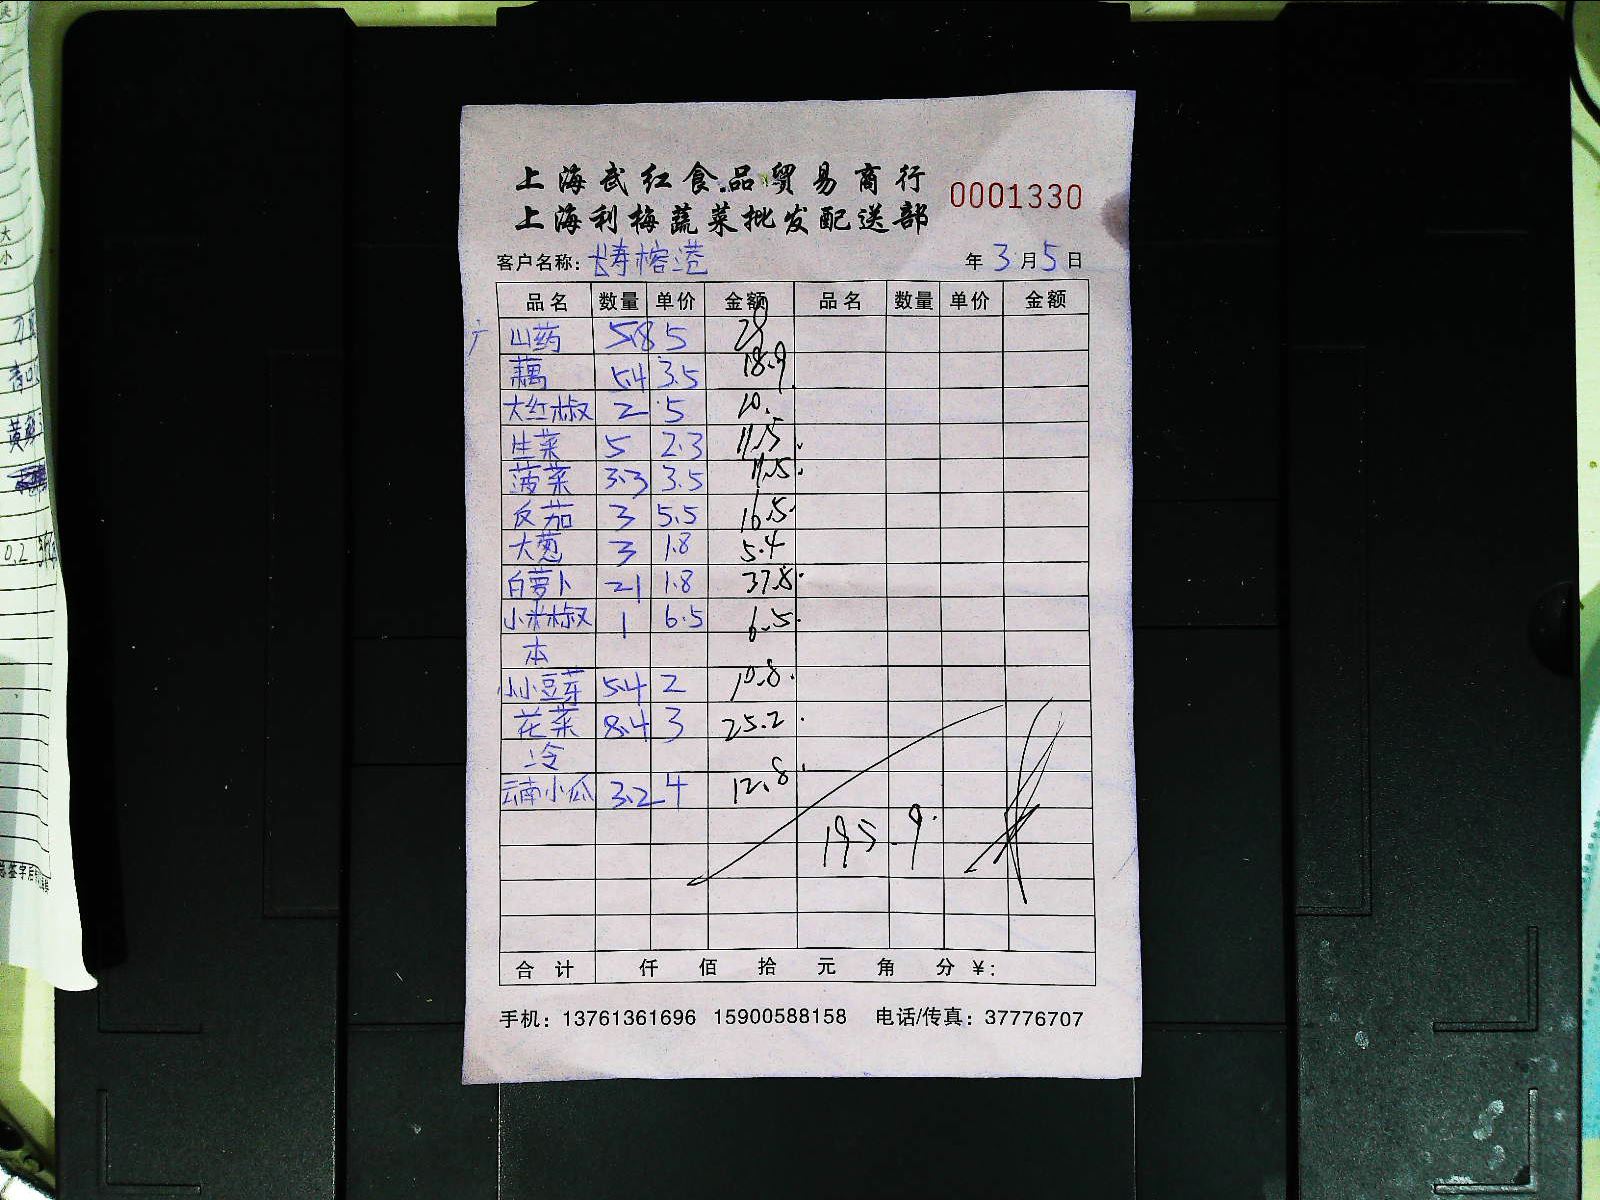 上海武红食品贸易商行
上海利梅蔬菜批发配送部
0001330
客户名称: 榕港 年 3 月 5 日
品名 数量 单价 金额 品名 数量 单价 金额
山药 5.8 5 28
藕 5.4 3.5 18.9
大红椒 2 5 10.
生菜 5 2.3 11.5
菠菜 3.3 3.5 11.5
反茄 3 5.5 16.5
大葱 3 1.8 5.4
白萝卜 21 1.8 37.8
小米椒 1 6.5 6.5
本
小豆芽 5.4 2 10.8
花菜 8.4 3 25.2
冷
云南小瓜 3.2 4 12.8
195.9
合计 仟 佰 拾 元 角 分 ¥:
手机: 13761361696 15900588158 电话/传真: 37776707